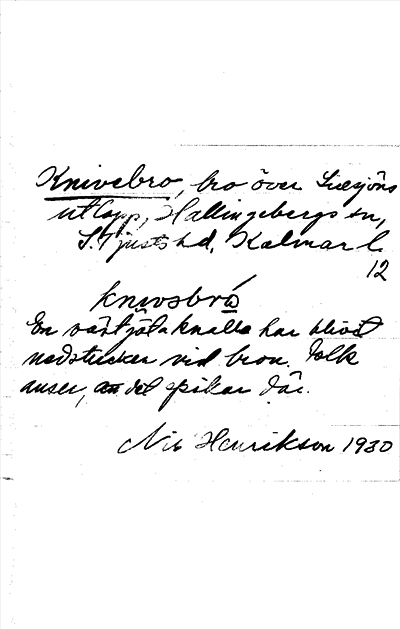 Knivebro, bro över Siresjöns
utlopp, Hallingebergs sn,
S. Tjusts hd, Kalmar l.
12
knivsbró
En västgötaknalle har blivit
nedstucken vid bron. Folk
anser, att det spökar där.
Nils Henrikson 1930